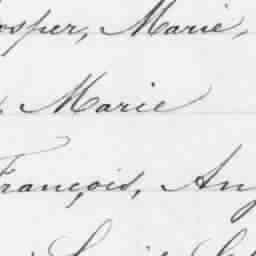 osper, Marie,
Marie
François, An